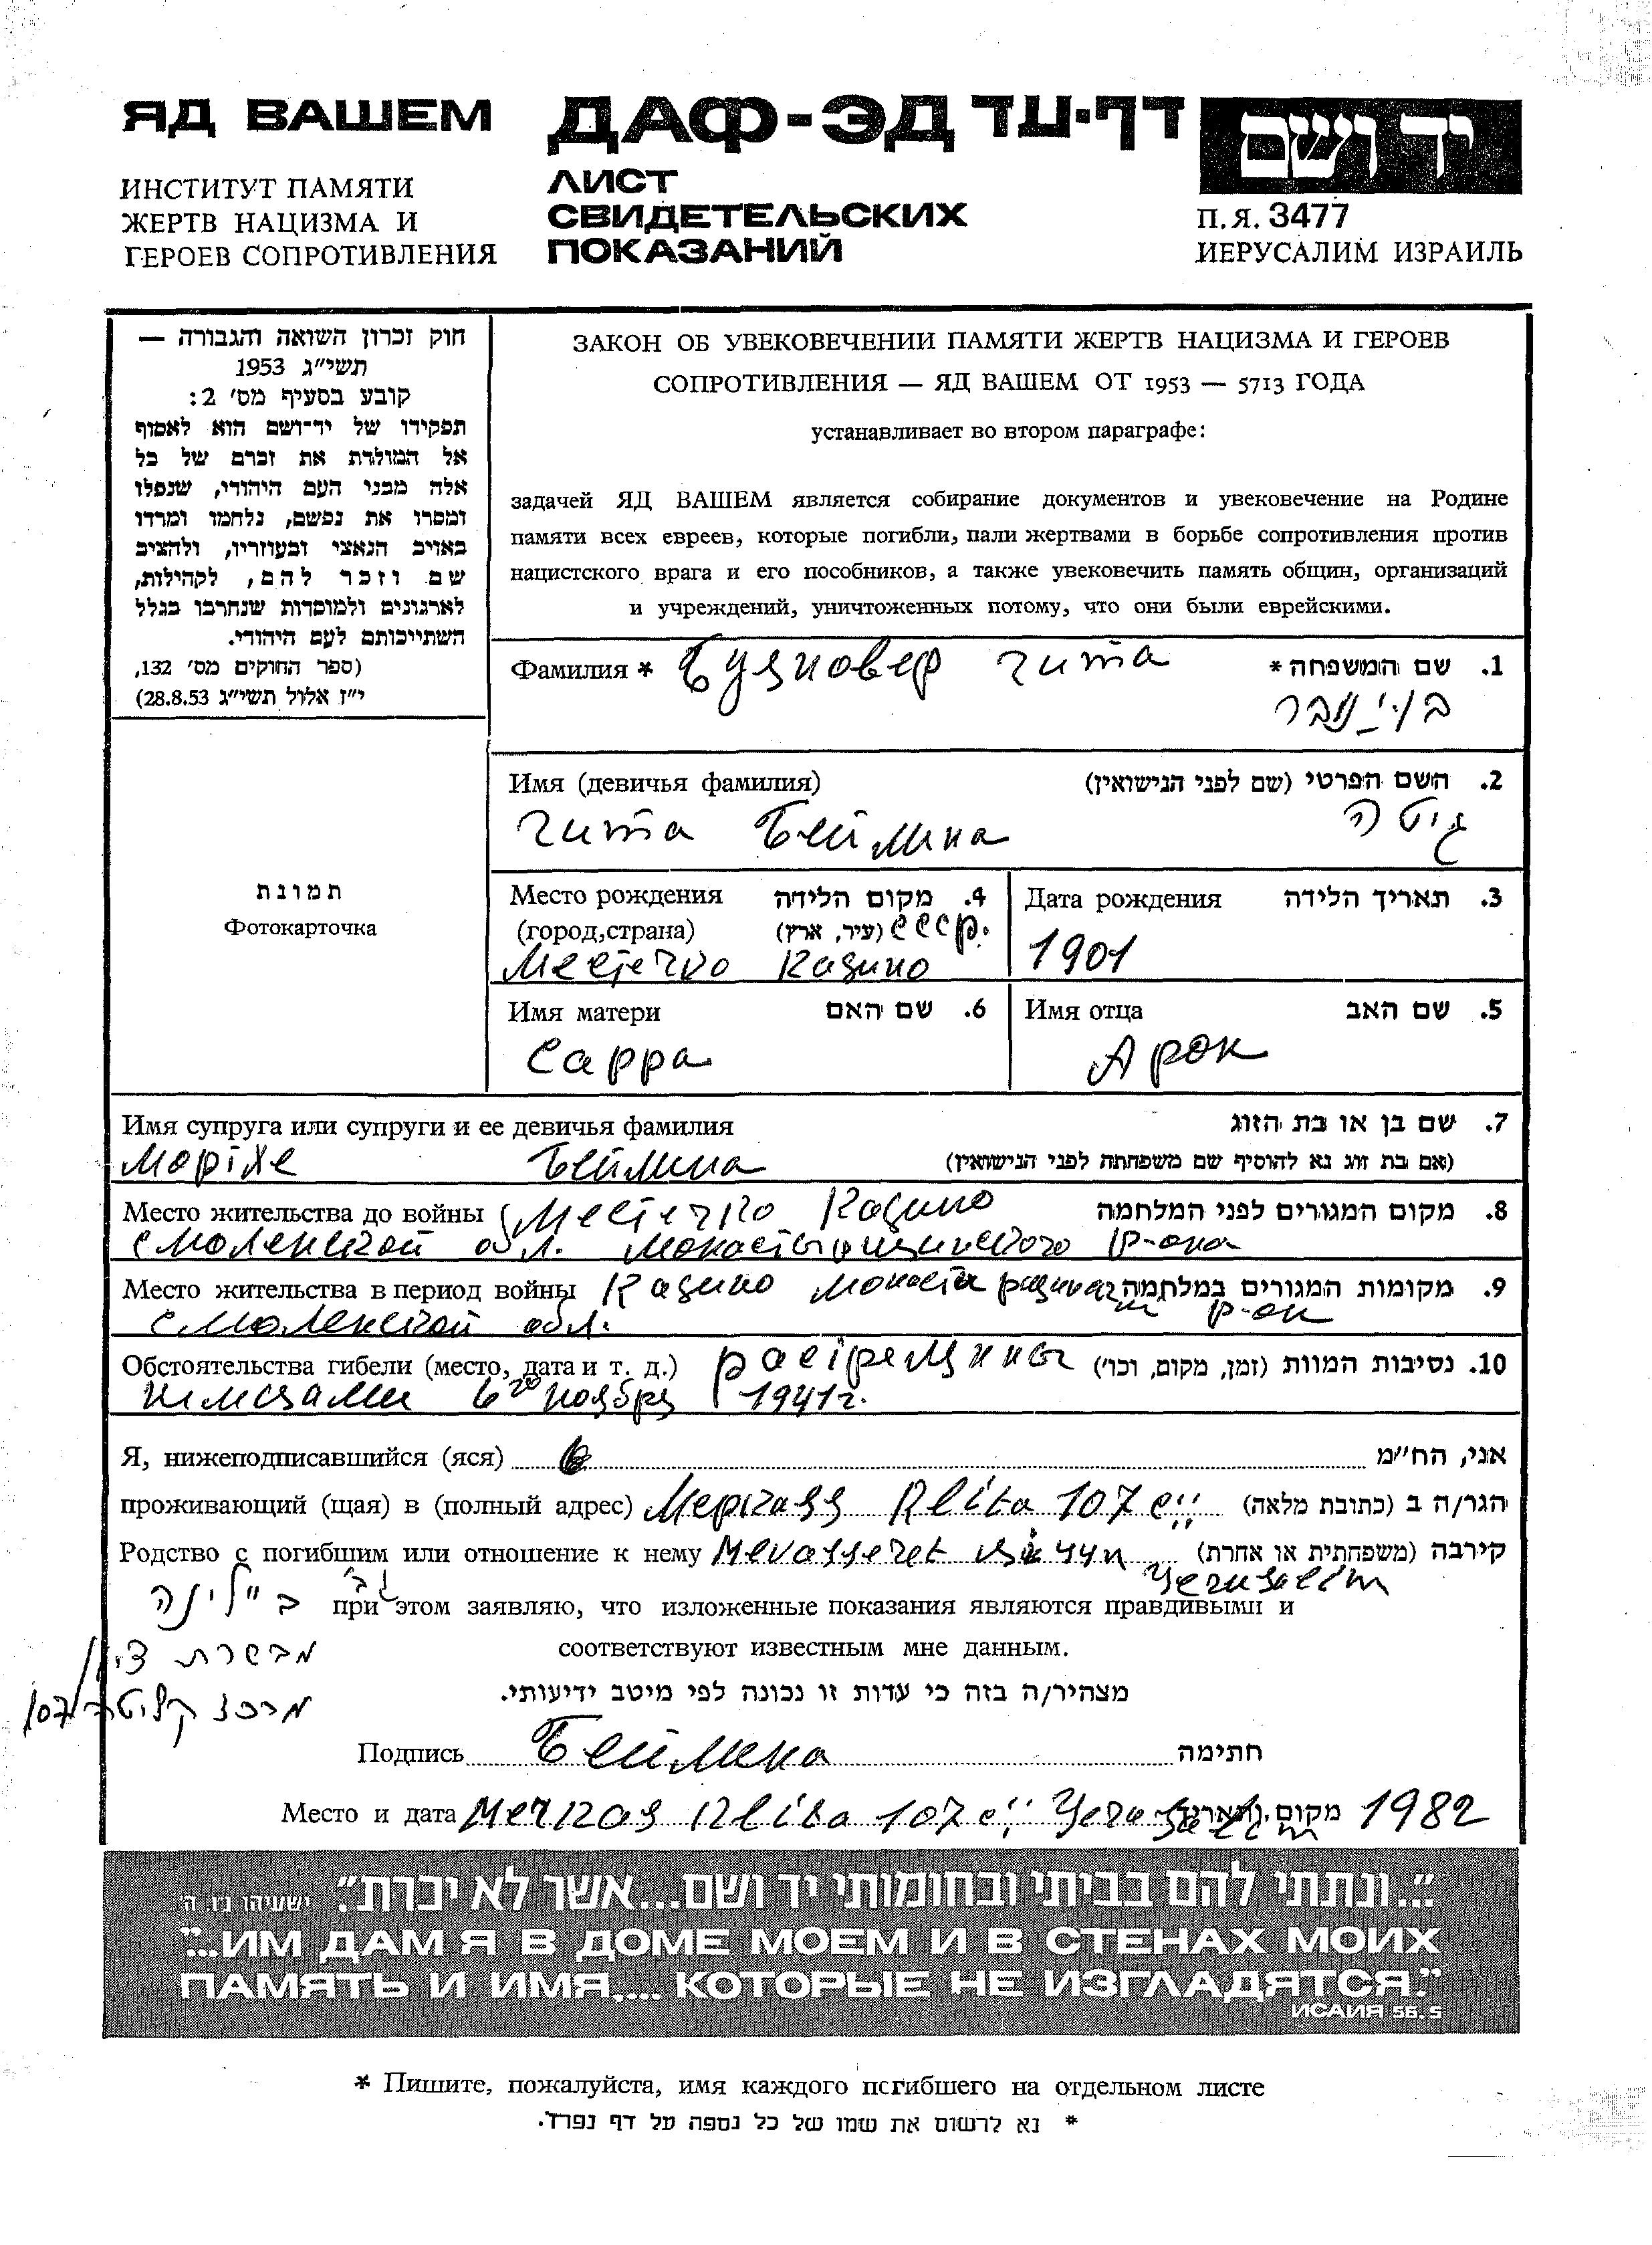 ЯД ВАШЕМ
ИНСТИТУТ ПАМЯТИ
ЖЕРТВ НАЦИЗМА И
ГЕРОЕВ СОПРОТИВЛЕНИЯ
ДАФ-ЭД דף-עד
ЛИСТ
СВИДЕТЕЛЬСКИХ
ПОКАЗАНИЙ
יד ושם
П.Я. 3477
ИЕРУСАЛИМ ИЗРАИЛЬ
חוק זכרון השואה והגבורה —
תשי״ג 1953
קובע בסעיף מס׳ 2:
תפקידו של יד־ושם הוא לאסוף
אל המולדת את זכרם של כל
אלה מבני העם היהודי, שנפלו
ומסרו את נפשם, נלחמו ומרדו
באויב הנאצי ובעוזריו, ולהציב
שם וזכר להם, לקהילות,
לארגונים ולמוסדות שנחרבו בגלל
השתייכותם לעם היהודי.
(ספר החוקים מס׳ 132,
י״ז אלול תשי״ג 28.8.53)
ЗАКОН ОБ УВЕКОВЕЧЕНИИ ПАМЯТИ ЖЕРТВ НАЦИЗМА И ГЕРОЕВ
СОПРОТИВЛЕНИЯ — ЯД ВАШЕМ ОТ 1953 — 5713 ГОДА
устанавливает во втором параграфе:
задачей ЯД ВАШЕМ является собирание документов и увековечение на Родине
памяти всех евреев, которые погибли, пали жертвами в борьбе сопротивления против
нацистского врага и его пособников, а также увековечить память общин, организаций
и учреждений, уничтоженных потому, что они были еврейскими.
Фамилия * гита 1. שם המשפחה *
Имя (девичья фамилия) 2. השם הפרטי (שם לפני הנישואין)
гита Бейлина גיטה
תמונת
Фотокарточка
Место рождения 4. מקום הלידה
(город,страна) (עיר, ארץ) СССР.
Местечко Кадино
Дата рождения 3. תאריך הלידה
1901
Имя матери 6. שם האם
Сарра
Имя отца 5. שם האב
Арон
Имя супруга или супруги и ее девичья фамилия 7. שם בן או בת הזוג
Бейлина (אם בת זוג נא להוסיף שם משפחתה לפני הנישואין)
Место жительства до войны Местечко Кадино 8. מקום המגורים לפני המלחמה
Смоленской обл. Монастырщинского р-она
Место жительства в период войны Кадино 9. מקומות המגורים במלחמה
Смоленской обл. р-он
Обстоятельства гибели (место, дата и т. д.) 10. נסיבות המוות (זמן, מקום, וכו׳)
6го ноября 1941г.
Я, нижеподписавшийся (яся) אני, הח״מ
проживающий (щая) в (полный адрес) 107 הגר/ה ב (כתובת מלאה)
Родство с погибшим или отношение к нему Mevasseret קירבה (משפחתית או אחרת)
Yerusalim
ביילינה при этом заявляю, что изложенные показания являются правдивыми и
соответствуют известным мне данным.
מבשרת ציון
מצהיר/ה בזה כי עדות זו נכונה לפי מיטב ידיעותי.
מרכז קליטה 107
Подпись Бейлина חתימה
Место и дата Merkas Klita 107 מקום ותאריך 1982
״...ונתתי להם בביתי ובחומותי יד ושם...אשר לא יכרת״. ישעיהו נ״ו ה׳
"...ИМ ДАМ Я В ДОМЕ МОЕМ И В СТЕНАХ МОИХ
ПАМЯТЬ И ИМЯ.... КОТОРЫЕ НЕ ИЗГЛАДЯТСЯ."
ИСАИЯ 56.5
* Пишите, пожалуйста, имя каждого погибшего на отдельном листе
* נא לרשום את שמו של כל נספה על דף נפרד.